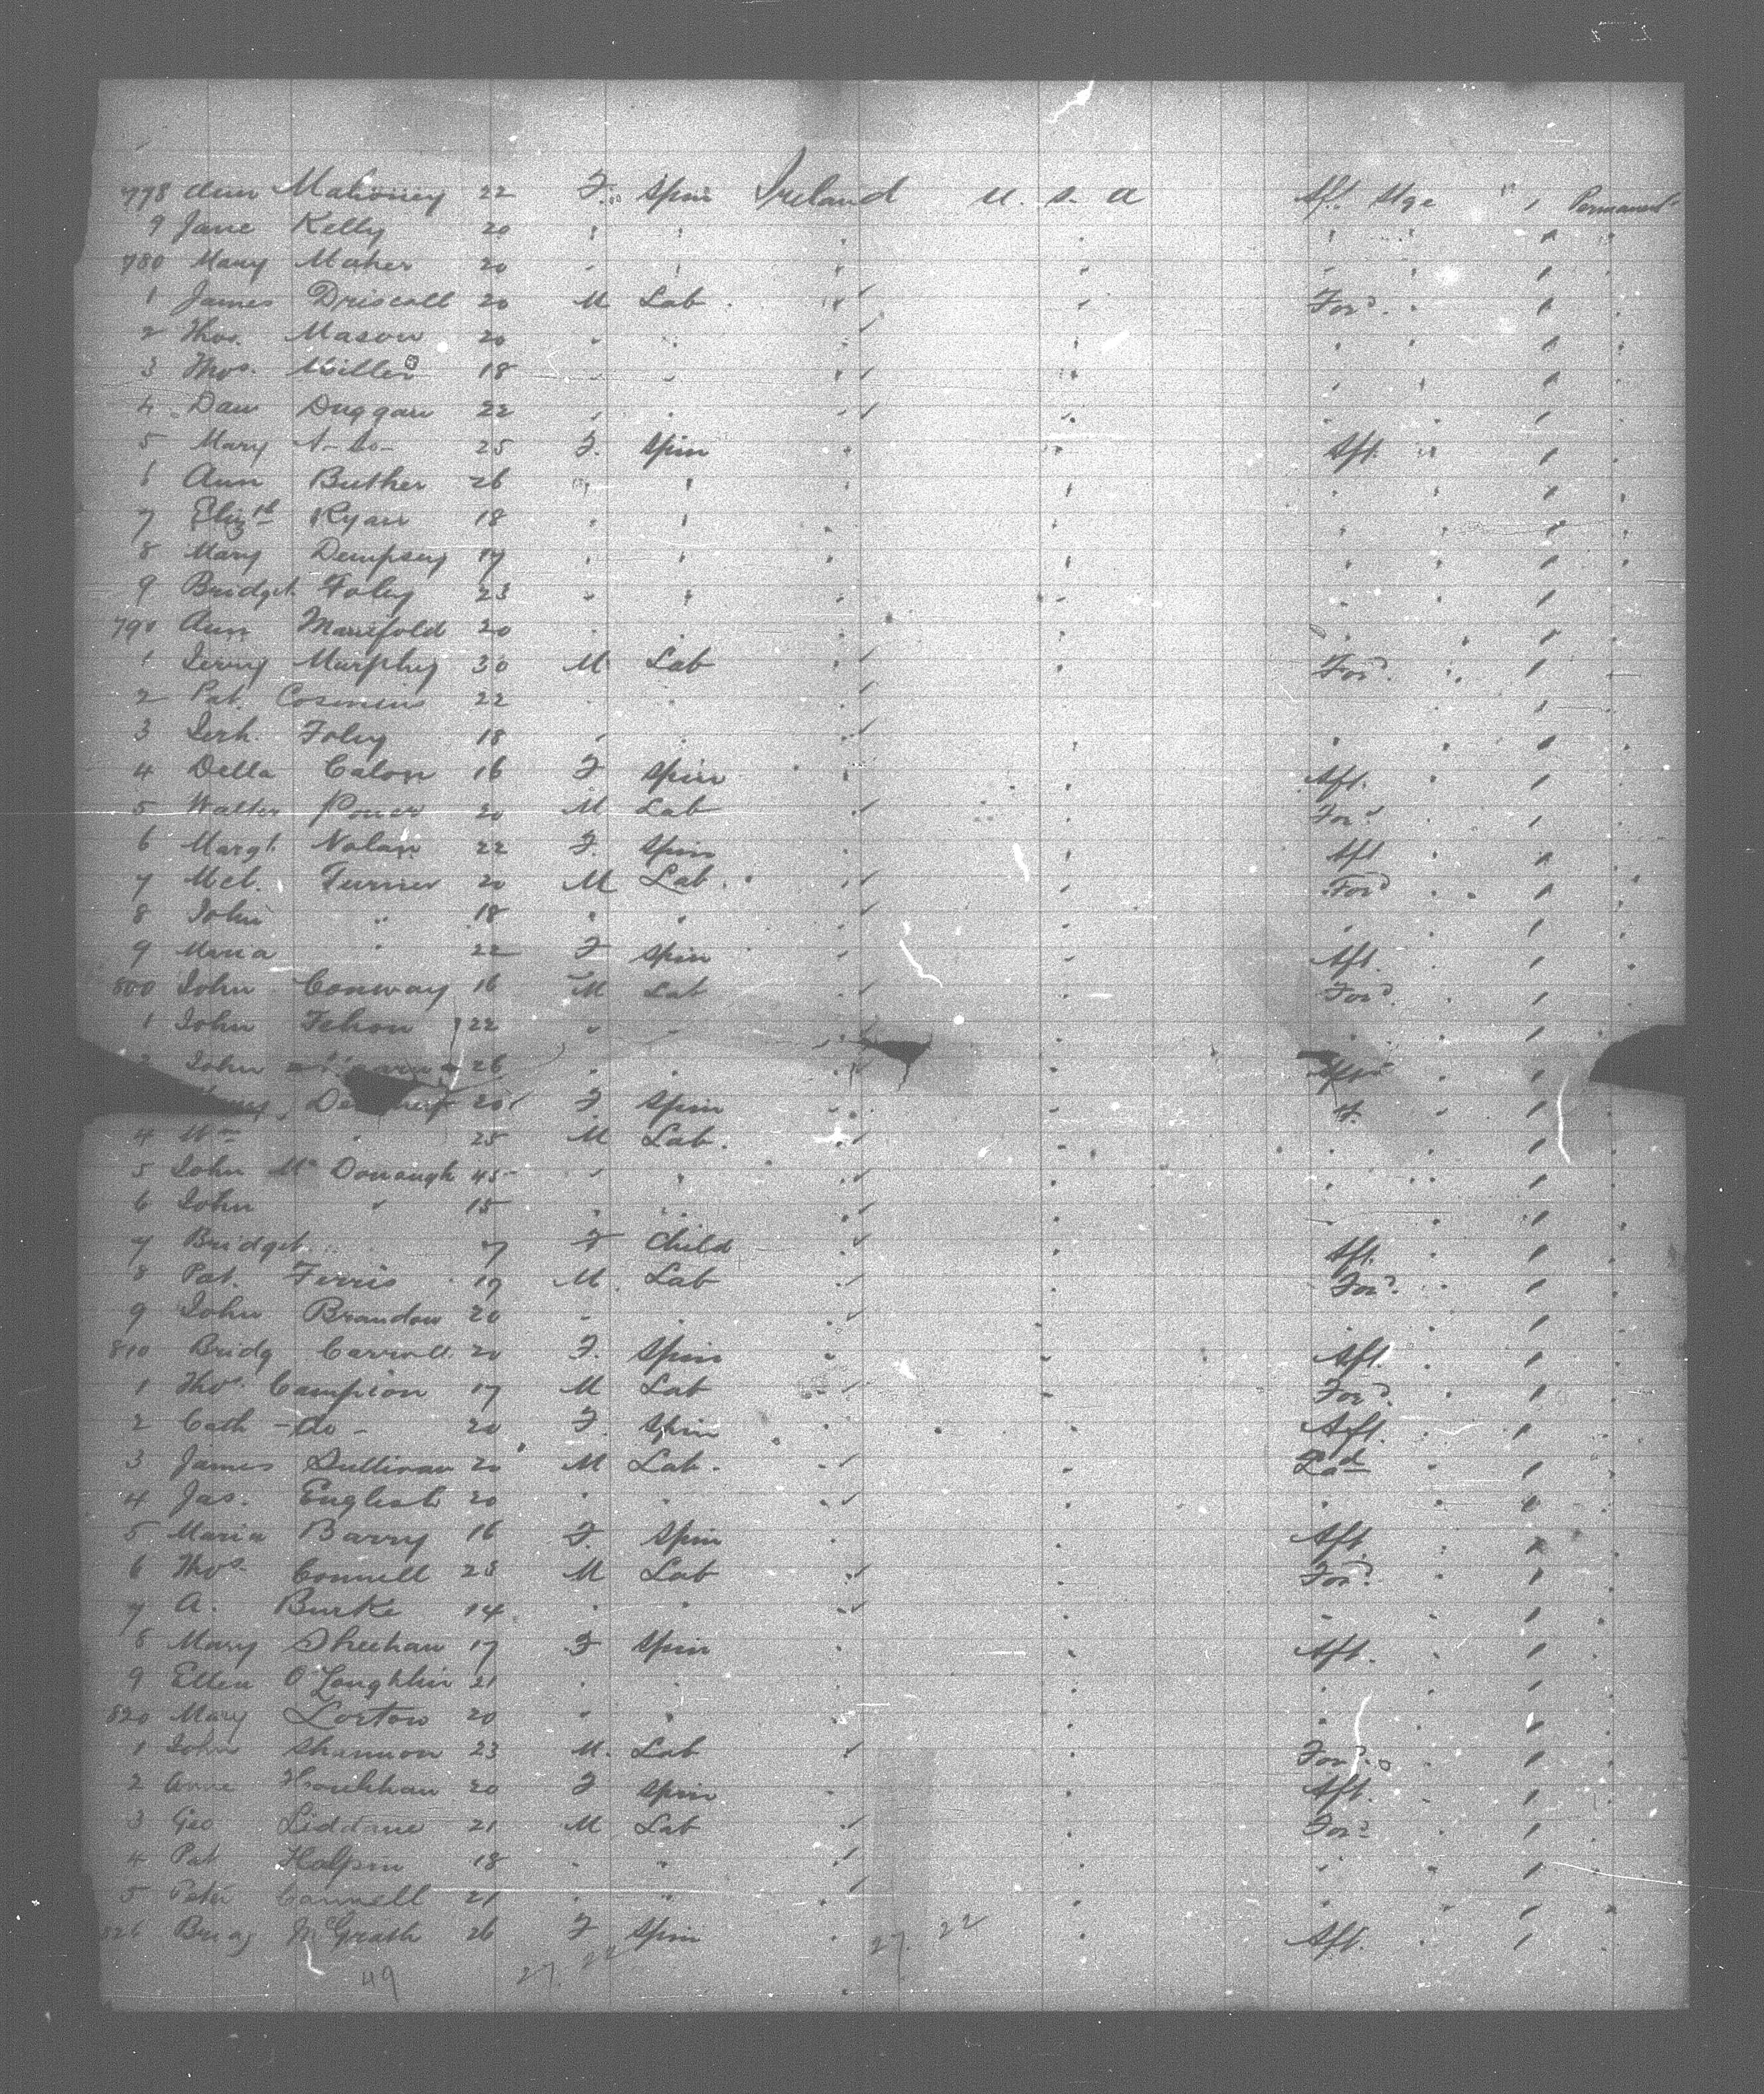 778 Ann Mahoney 22 F. Spin Ireland U. S. A Aft. Stge " , Permanent
9 Jane Kelly 20 " "
780 Mary Maher 20 " "
1 James Driscoll 20 M Lab. Ford.
2 Thos. Mason 20 " "
3 Thos. Miller 18 " "
4 Dan Duggan 22 " "
5 Mary -do- 25 F. Spin Aft. "
6 Ann Buther 26 " "
7 Elizth Ryan 18 " "
8 Mary Dempsey 17 " "
9 Bridget Foley 23 " "
790 Ann Manifold 20
1 Jermy Murphy 30 M Lab Ford.
2 Pat. 22
3 Jerh. Foley 18 " "
4 Della 16 F Spin Aft.
5 Walter Power 20 M Lab Ford
6 Margt. Nolan 22 F. Spin Aft
7 Mcl. Turner 20 M Lab. Ford
8 John " 18 " "
9 Maria " 22 F Spin Aft.
800 John Conway 16 M Lab Ford
1 John Fehon 22 " "
2 John 26 " "
20 F Spin
4 Wm " 25 M Lab.
5 John Mc Donough 45 " "
6 John " 15 " "
7 Bridget 7 F Child Aft.
8 Pat. Ferris 17 M Lab Ford.
9 John Brandon 20 "
810 Bridg Carroll 20 F. Spin Aft.
1 Thos. Campion 17 M Lab Ford.
2 Cath -do- 20 F. Spin Aft.
3 James Sullivan 20 M Lab.
4 Jas. English 20 " "
5 Maria Barry 16 F. Spin Aft.
6 Thos. Connell 25 M Lab Ford.
7 A. Burke 14 " "
8 Mary Sheehan 17 F Spin Aft.
9 Ellen O'Loughlin 21 " "
820 Mary Lorton 20 " "
1 John Shannon 23 M. Lab Ford.
2 Anne Hourihan 20 F Spin Aft.
3 Geo Liddane 21 M Lab Ford
4 Pat Halpin 18 " "
5 Peter Cannell 21 " "
826 Bridg McGrath 26 F Spin Aft.
49 27. 22 27. 22